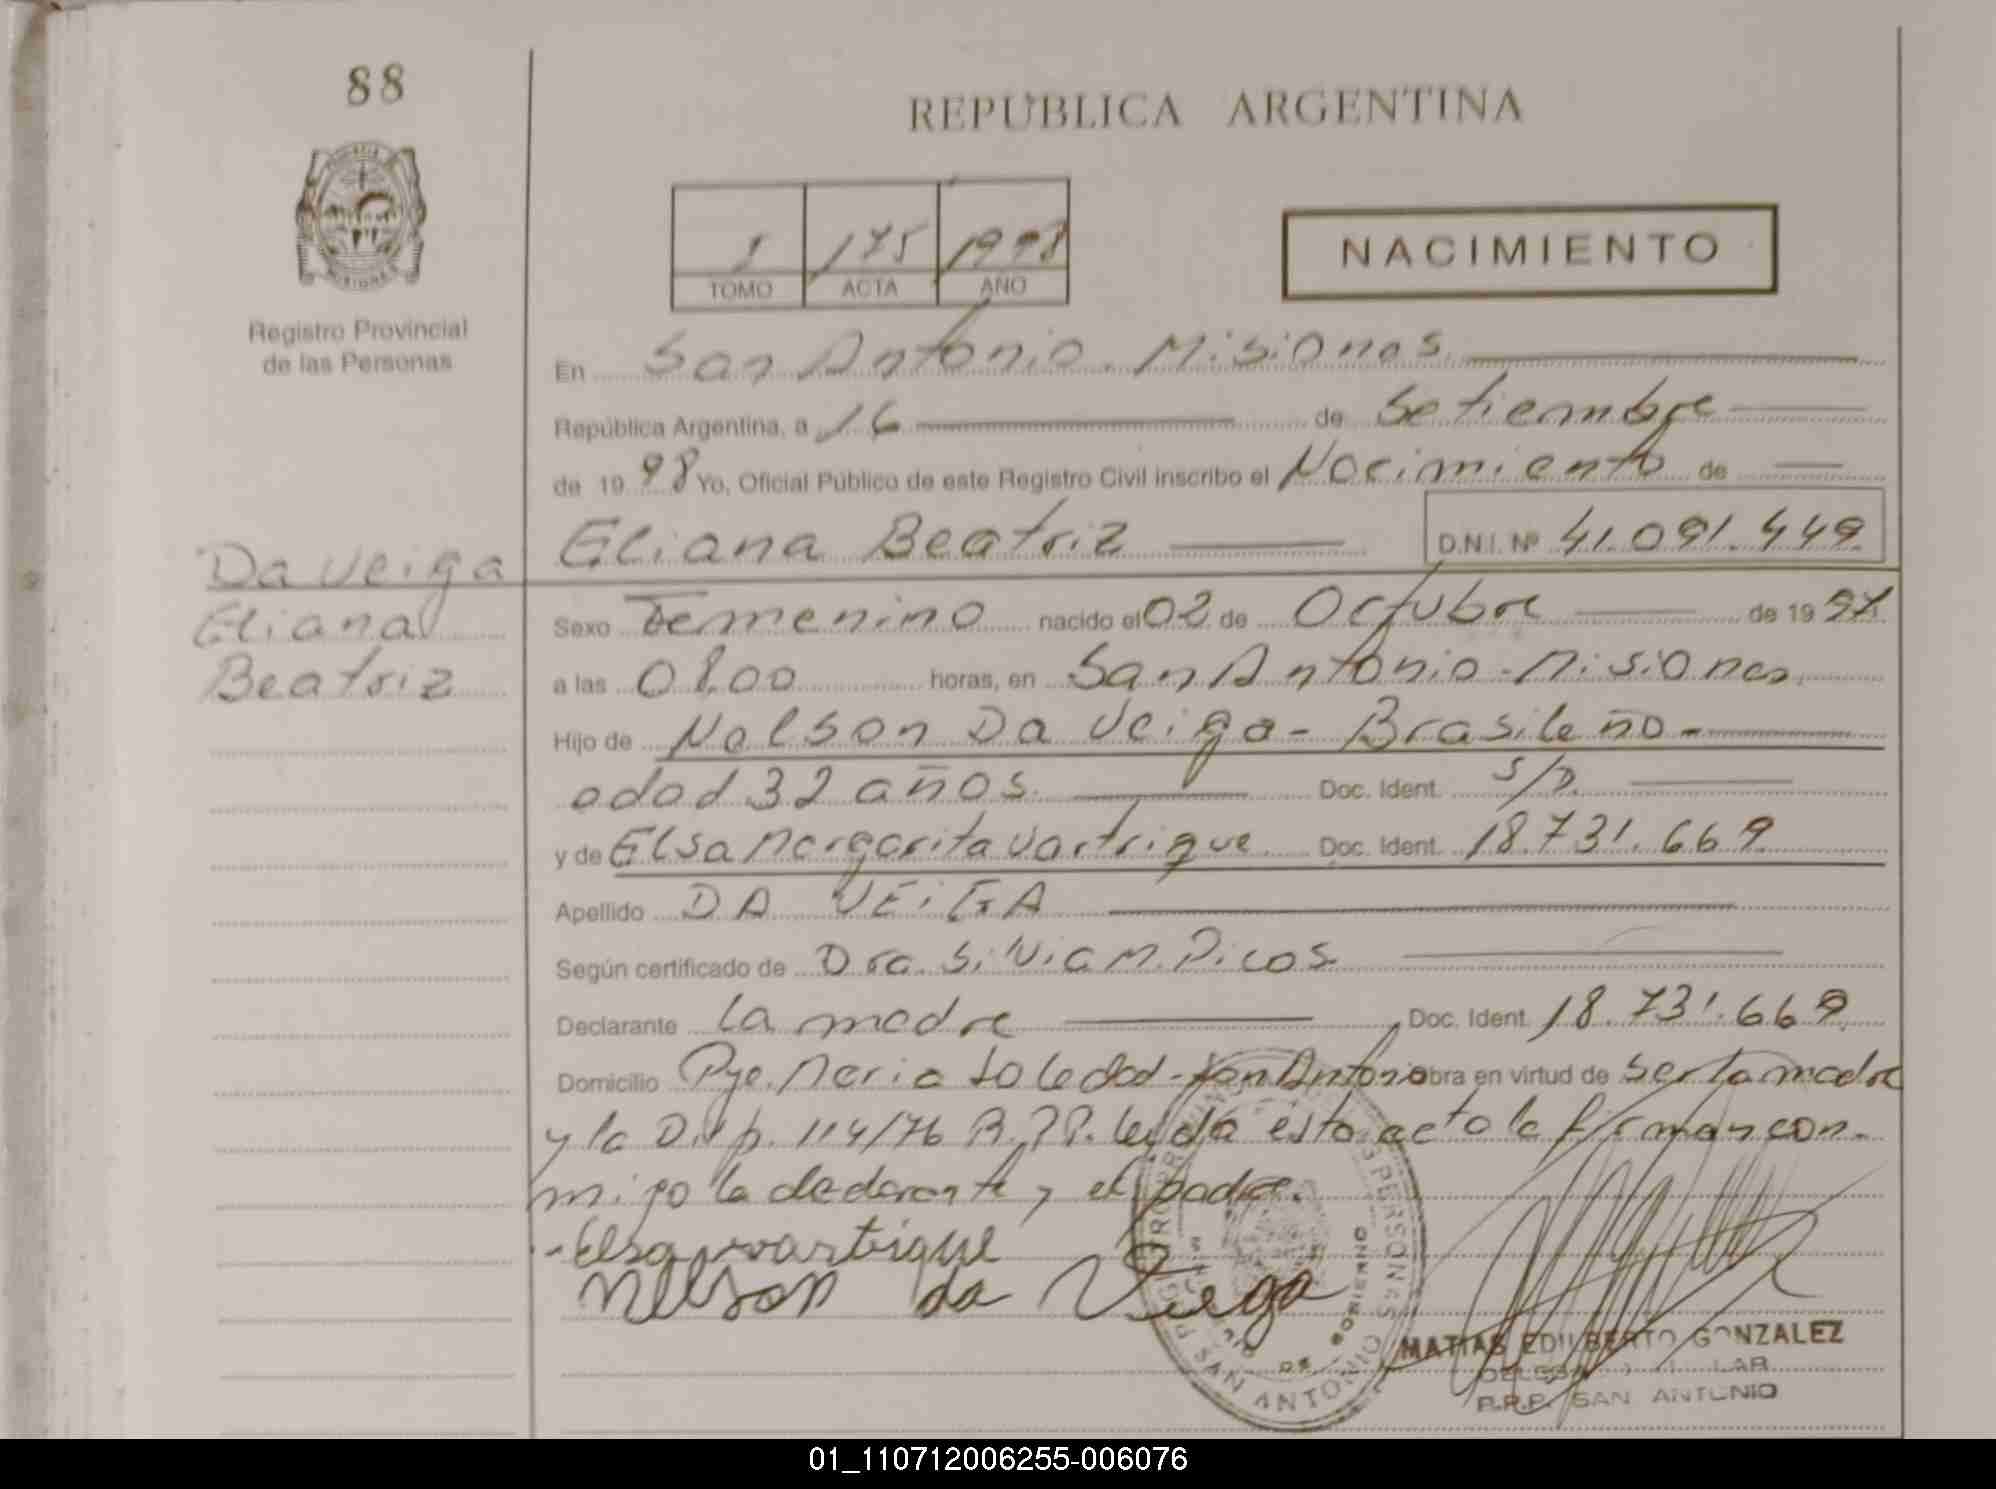 88
REPUBLICA ARGENTINA
1 175 1998
TOMO ACTA AÑO
NACIMIENTO
Registro Provincial
de las Personas
En San Antonio. Misiones.
República Argentina, a 16 de Setiembre
de 1998 Yo, Oficial Público de este Registro Civil inscribo el Nacimiento de
Eliana Beatriz D.N.I. Nº 41.091.449
Da Veiga
Eliana
Beatriz
Sexo Femenino nacido el 02 de Octubre de 1997
a las 08.00 horas, en San Antonio - Misiones.
Hijo de Nelson Da Veiga - Brasileño -
edad 32 años. Doc. Ident. S/D.
y de Elsa Margarita Vartrique Doc. Ident. 18.731.669
Apellido DA VEiGA
Según certificado de Dra. Silvia M. Picos.
Declarante La madre Doc. Ident. 18.731.669
Domicilio Pje. Maria Soledad - San Antonio obra en virtud de ser la madre
y la Disp. 114/76 R.P.P. leida esta acta la firman con-
migo la declarante y el padre.
- Elsa vartrique
Nelson da Veiga
REGISTRO PROVINCIAL DE LAS PERSONAS
SAN ANTONIO
MATIAS EDILBERTO GONZALEZ
R.P.P. SAN ANTONIO
01_110712006255-006076